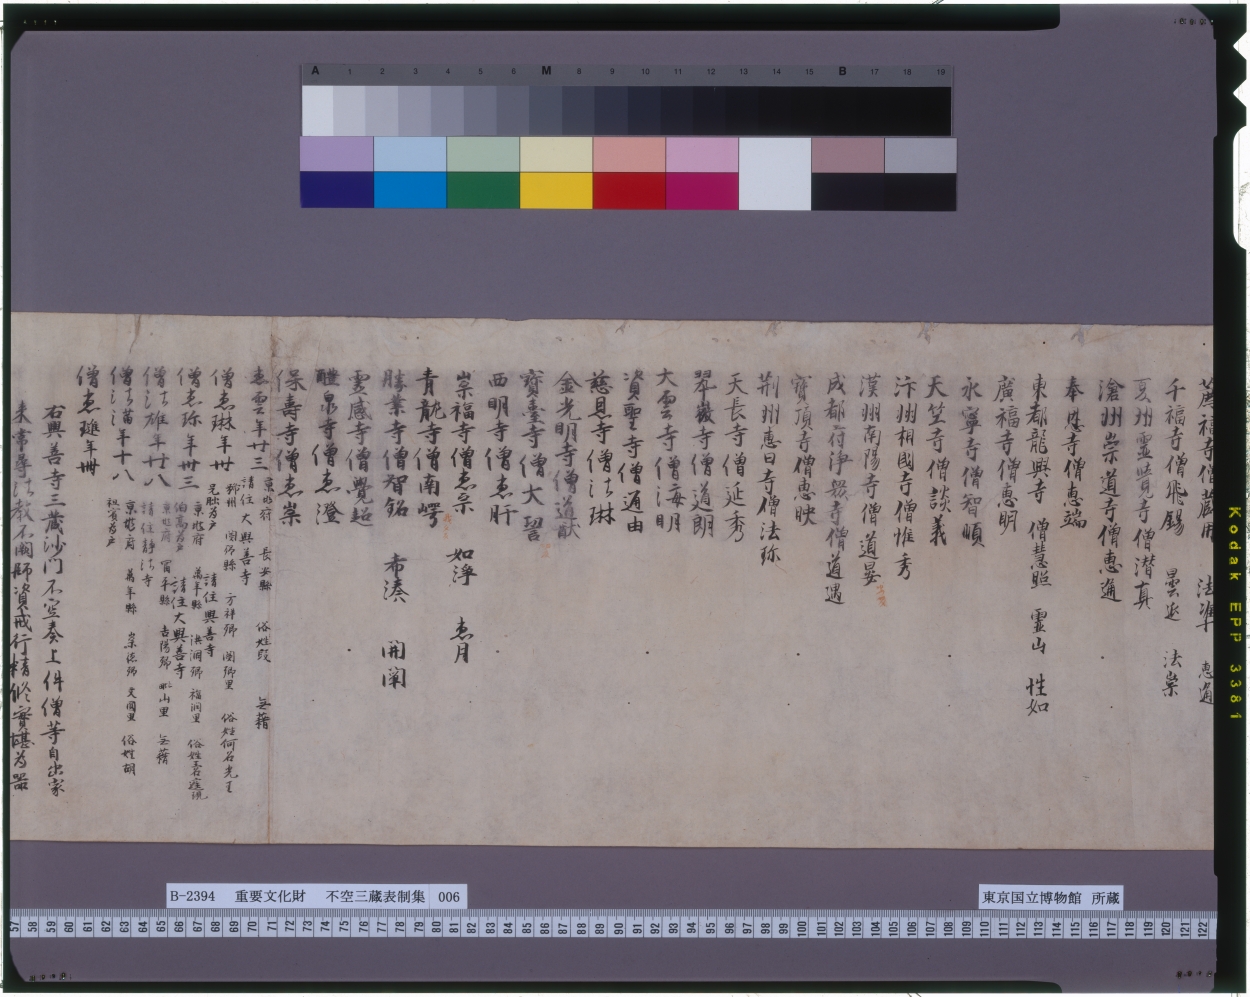 A 1 2 3 4 5 6 M 8 9 10 11 12 13 14 15 B 17 18 19
薦福寺僧 法準 惠通
千福寺僧飛錫 曇延 法崇
夏州靈覺寺僧潛真
滄州崇道寺僧惠通
奉恩寺僧惠端
東都龍興寺 僧慧照 靈山 性如
廣福寺僧惠明
永寧寺僧智順
天竺寺僧談義
汴州相國寺僧惟秀
漢州南陽寺僧道晏
成都府淨衆寺僧道遇
寶頂寺僧惠映
荊州惠日寺僧法珍
天長寺僧延秀
翠微寺僧道朗
大雲寺僧海明
資聖寺僧道由
慈恩寺僧法琳
金光明寺僧道猷
寶臺寺僧大
西明寺僧惠肝
崇福寺僧惠宗 如淨 惠月
青龍寺僧南
勝業寺僧智銘 希湊 開闡
靈感寺僧覺超
醴泉寺僧惠澄
保壽寺僧惠崇
惠雲年廿三 京兆府 長安縣 俗姓段 無藉
請住大興善寺
僧惠琳年卅
請住興善寺
僧惠珍年卅三 京兆府 萬年縣 洪洞鄉 福潤里
請住大興善寺
僧法雄年廿八 富平縣 無藉
請住靜法寺
僧法滿年十八 京兆府 萬年縣 崇德鄉 文圓里 俗姓胡
祖為戶
僧惠璀年卅
右興善寺三藏沙門不空奏上件僧等自出家
來常尋法教不闕師資戒行精修實堪為器
B-2394 重要文化財 不空三蔵表制集 006
東京国立博物館 所蔵
57 58 59 60 61 62 63 64 65 66 67 68 69 70 71 72 73 74 75 76 77 78 79 80 81 82 83 84 85 86 87 88 89 90 91 92 93 94 95 96 97 98 99 100 101 102 103 104 105 106 107 108 109 110 111 112 113 114 115 116 117 118 119 120 121 122
Kodak EPP 3381